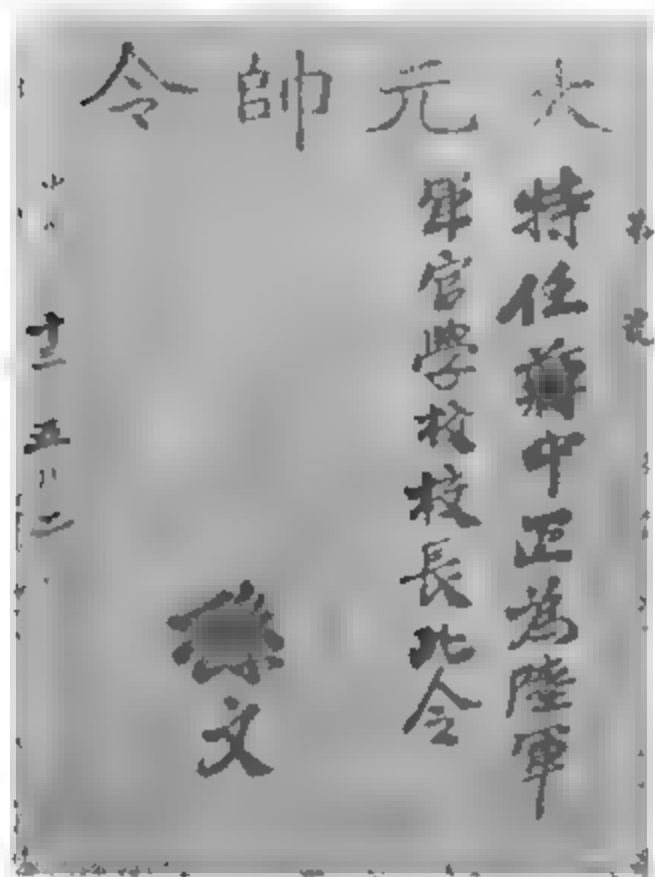 大元帥令
特任蔣中正為陸軍
軍官學校校長此令
文
十三 五